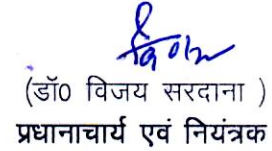 (डॉ0 विजय सरदाना )
प्रधानाचार्य एवं नियंत्रक